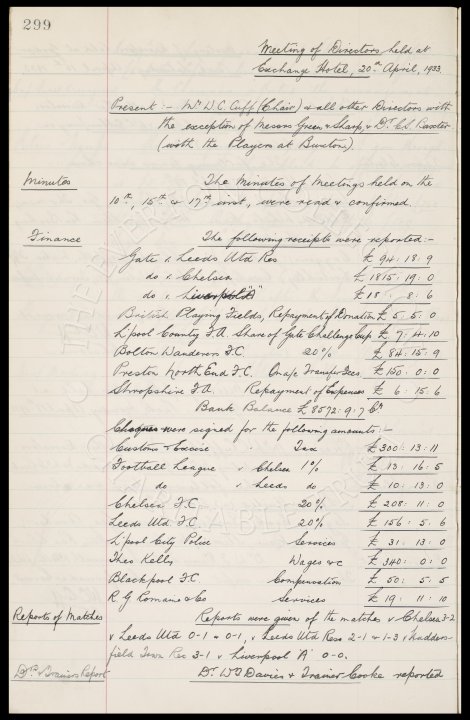 299
Meeting of Directors held at
Exchange Hotel, 20th April, 1933.
Present :- Mr W.C. Cuff (Chair) & all other Directors with
the exception of Messrs Green & Sharp, & Dr C.S. Baxter
(with the Players at Buxton).
Minutes The Minutes of Meetings held on the
10th, 15th & 17th inst, were read & confirmed.
Finance The following receipts were reported:-
Gate v. Leeds Utd Res £ 94 : 18 : 9
do v. Chelsea £ 1815 : 19 : 0
do v. Liverpool "A" £ 18 : 8 : 6
British Playing Fields, Repayment of Donation £ 5 : 5 : 0
L'pool County F.A. Share of Gate Challenge Cup £ 7 : 4 : 10
Bolton Wanderers F.C. 20% £ 84 : 15 : 9
Preston North End F.C. on a/c Transfer Fees £ 150 : 0 : 0
Shropshire F.A. Repayment of Expenses £ 6 : 15 : 6
Bank Balance £8572 : 9 : 7 Cr
Cheques were signed for the following amounts :-
Customs & Excise Tax £ 300 : 13 : 11
Football League v Chelsea 1% £ 13 : 16 : 5
do v Leeds do £ 10 : 13 : 0
Chelsea F.C. 20% £ 208 : 11 : 0
Leeds Utd. F.C. 20% £ 156 : 5 : 6
L'pool City Police Services £ 31 : 13 : 0
Theo Kelly Wages &c £ 340 : 0 : 0
Blackpool F.C. Compensation £ 50 : 5 : 5
R G Romane & Co Services £ 19 : 11 : 10
Reports of Matches Reports were given of the matches v Chelsea 3-2
v Leeds Utd 0-1 & 0-1, v Leeds Utd Res 2-1 & 1-3 v Hudders-
field Town Res 3-1 v Liverpool 'A' 0-0.
Drs & Trainers Report Dr. W. Davies & Trainer Cooke reported